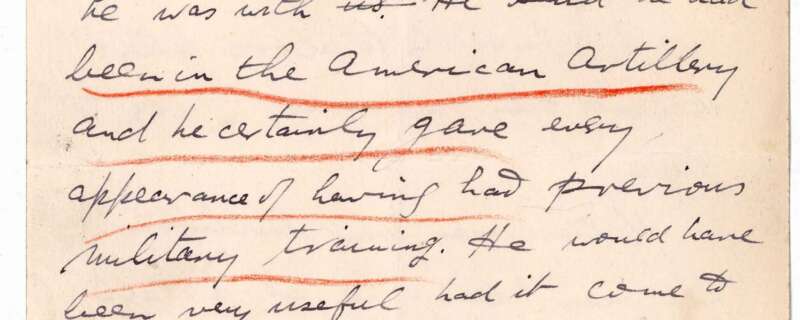 he was with us. He said he had
been in the American Artillery
and he certainly gave every
appearance of having had previous
military training. He would have
been very useful had it come to